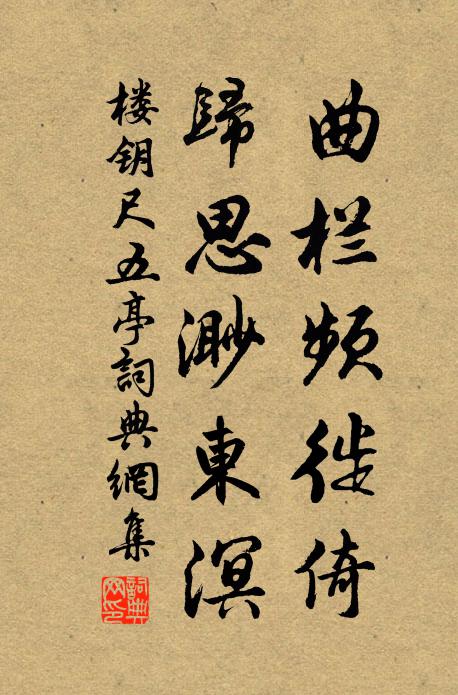 曲栏频徙倚
歸思渺東溟
楼钥尺五亭詞典網集
詞典
网印